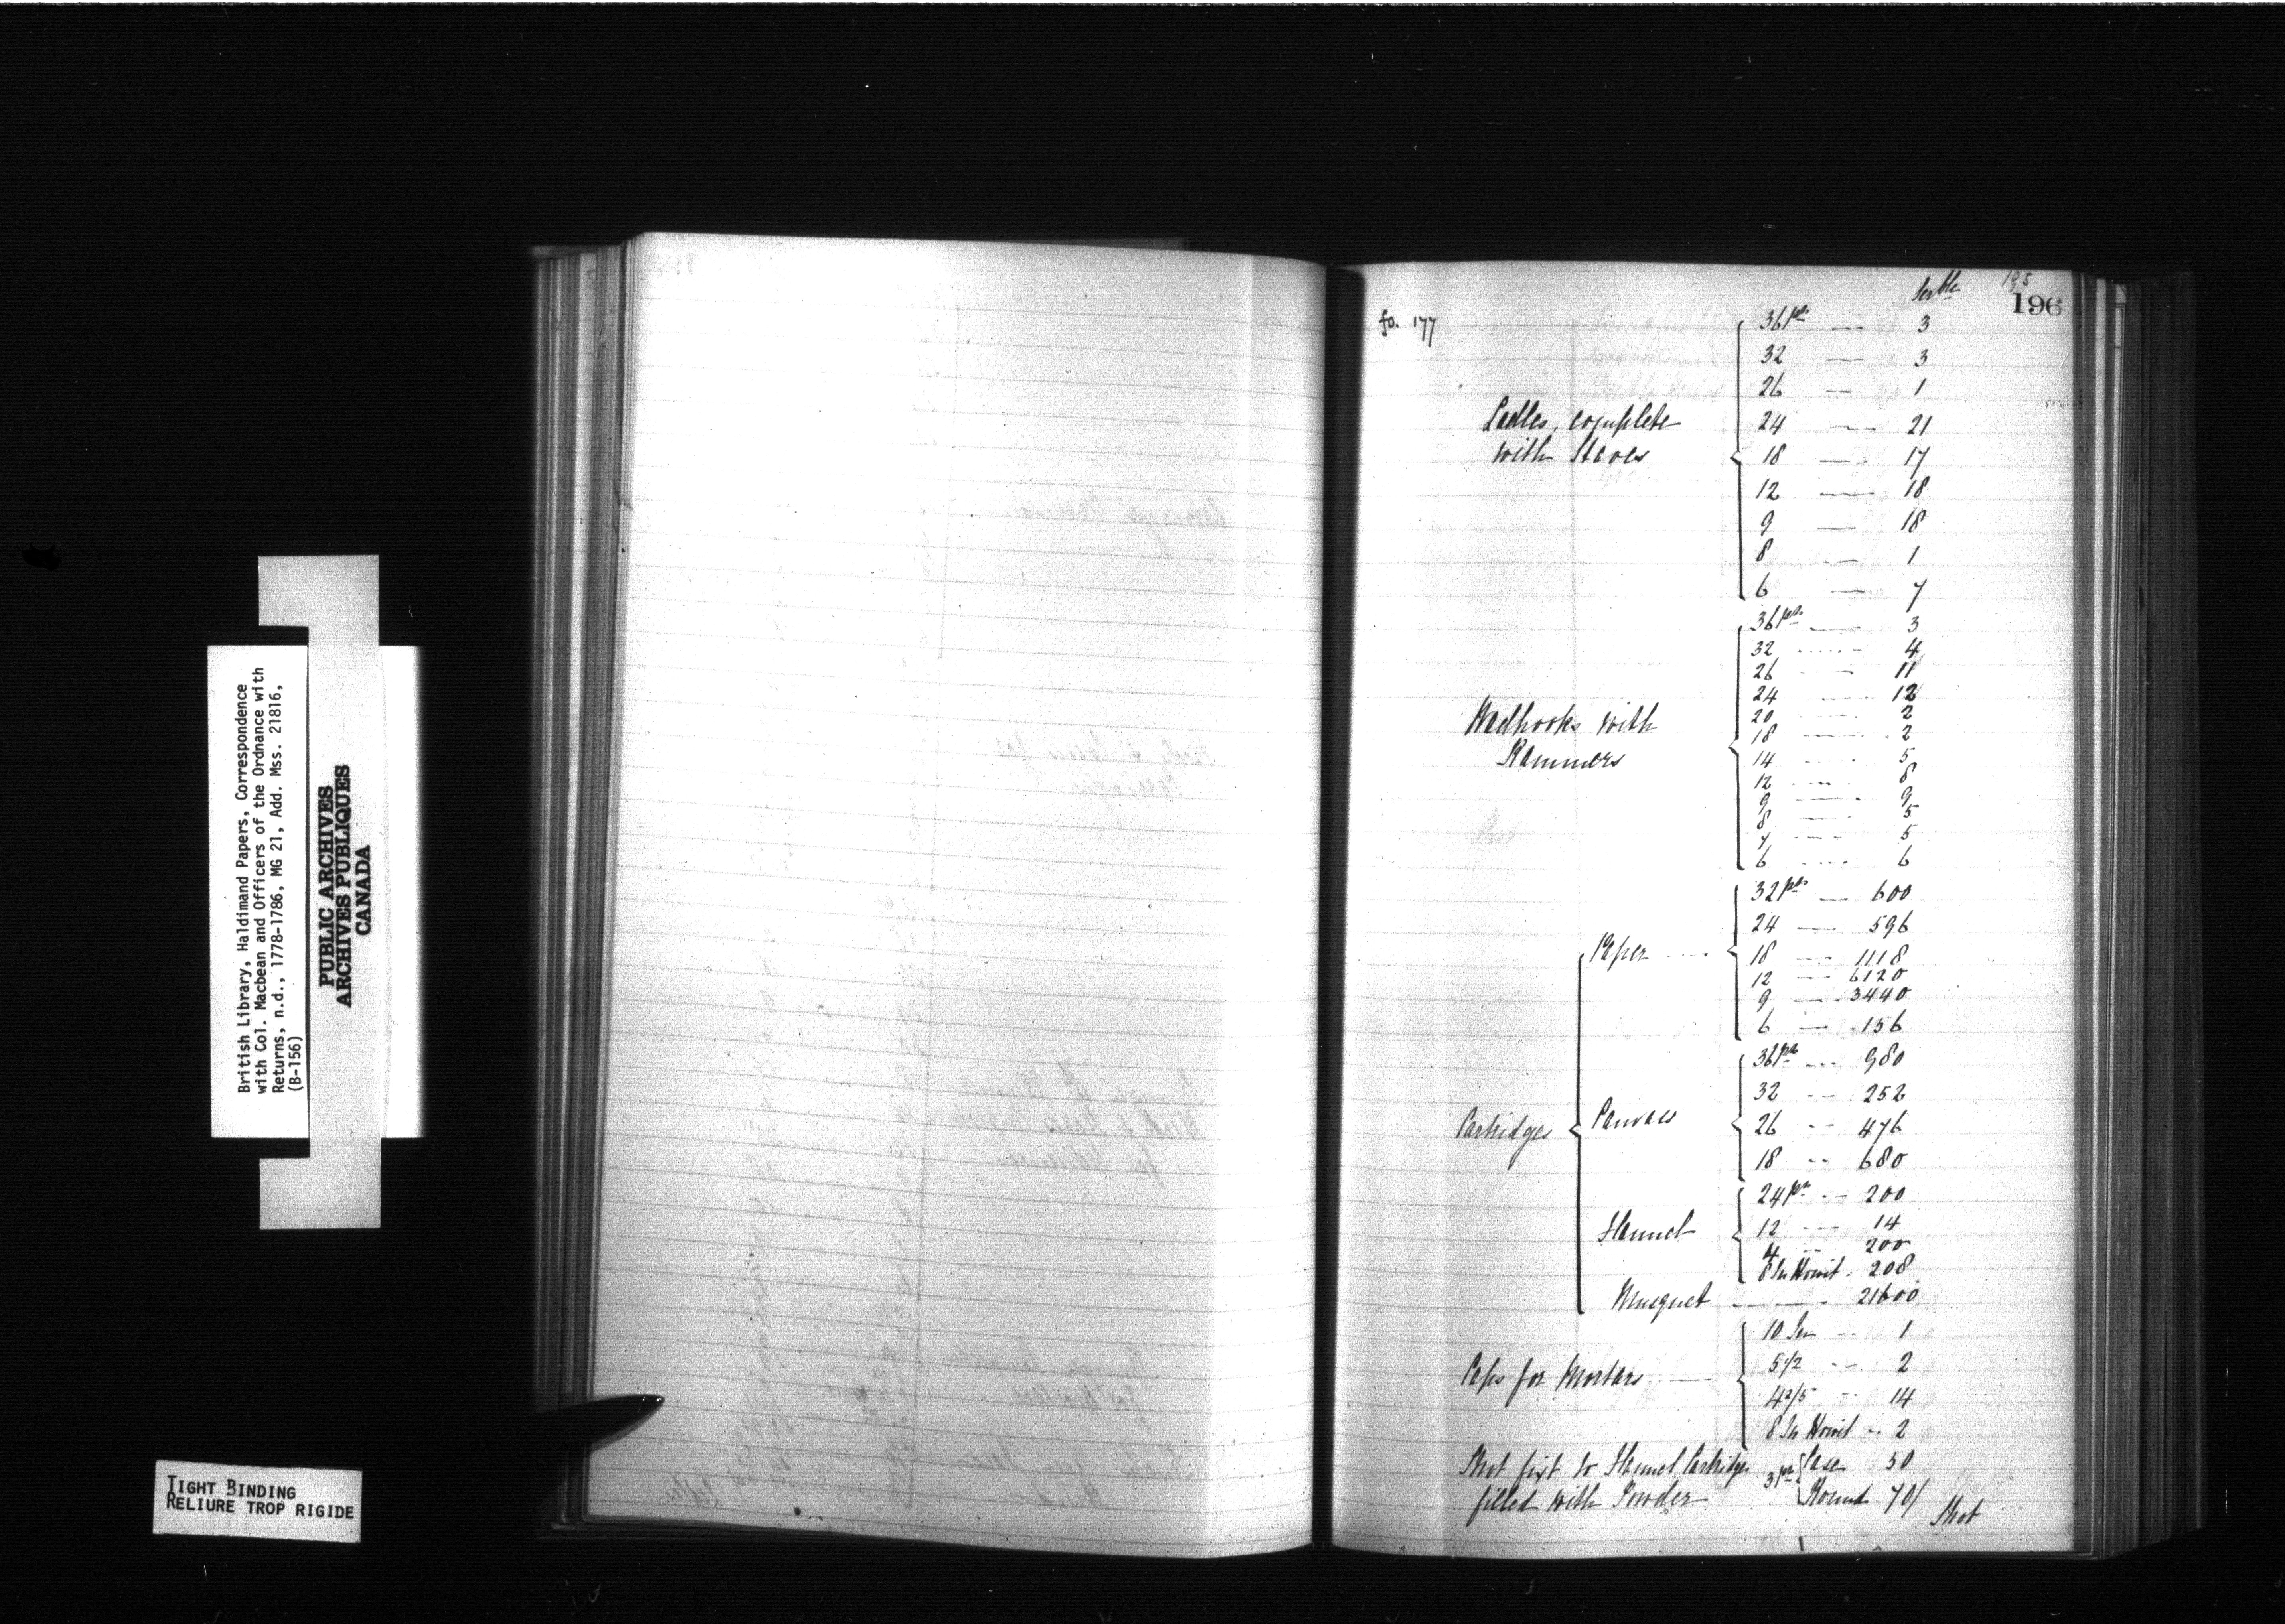 British Library, Haldimand Papers, Correspondence
with Col. Macbean and Officers of the Ordnance with
Returns, n.d., 1778-1786, MG 21, Add. Mss. 21816,
(B-156)
PUBLIC ARCHIVES
ARCHIVES PUBLIQUES
CANADA
TIGHT BINDING
RELIURE TROP RIGIDE
195
196
fo. 177
Serble
36 prs — 3
32 — 3
26 — 1
Ladles, complete 24 — 21
with Staves 18 — 17
12 — 18
9 — 18
8 — 1
6 — 7
36 prs — 3
32 — 4
26 — 11
24 — 12
Wadhooks with 20 — 2
18 — 2
Rammers 14 — 5
12 — 8
9 — 9
8 — 5
7 — 5
6 — 6
32 prs — 600
24 — 596
Paper 18 — 1118
12 — 6120
9 — 3440
6 — 156
36 pr — 980
32 — 252
Cartridges Canvas 26 — 476
18 — 680
24 pr — 200
Flannel 12 — 14
4 — 200
8 In Howit. 208
Musquet — 21600
10 In — 1
5 1/2 — 2
Caps for Mortars 4 2/5 14
8 In Howit — 2
Shot fixt to Flannel Cartridges 3 pr Case 50
filled with Powder Round 70/
Shot